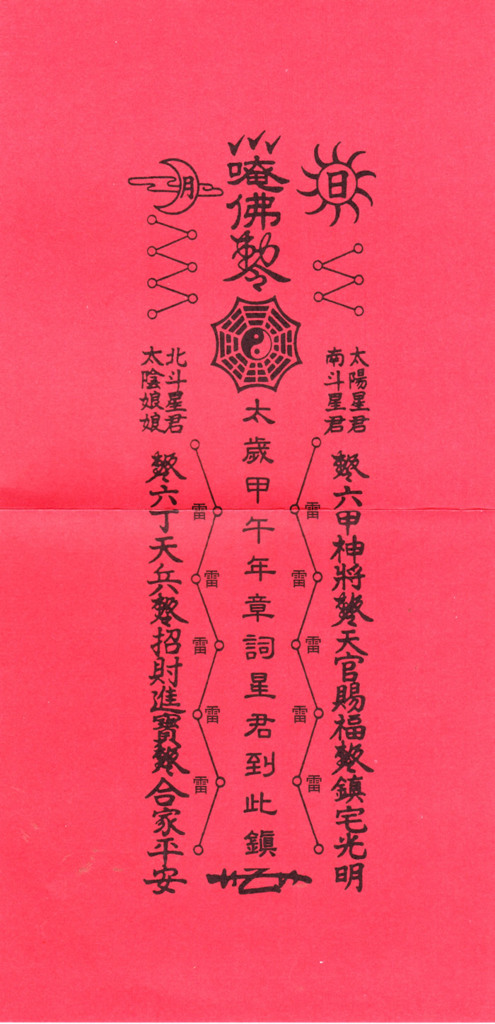 日
月
唵佛勅令
太陽星君
南斗星君
北斗星君
太陰娘娘
太歲甲午年章詞星君到此鎮
勅令六甲神將勅令天官賜福勅令鎮宅光明
勅令六丁天兵勅令招財進寶勅令合家平安
雷
雷
雷
雷
雷
雷
雷
雷
雷
雷